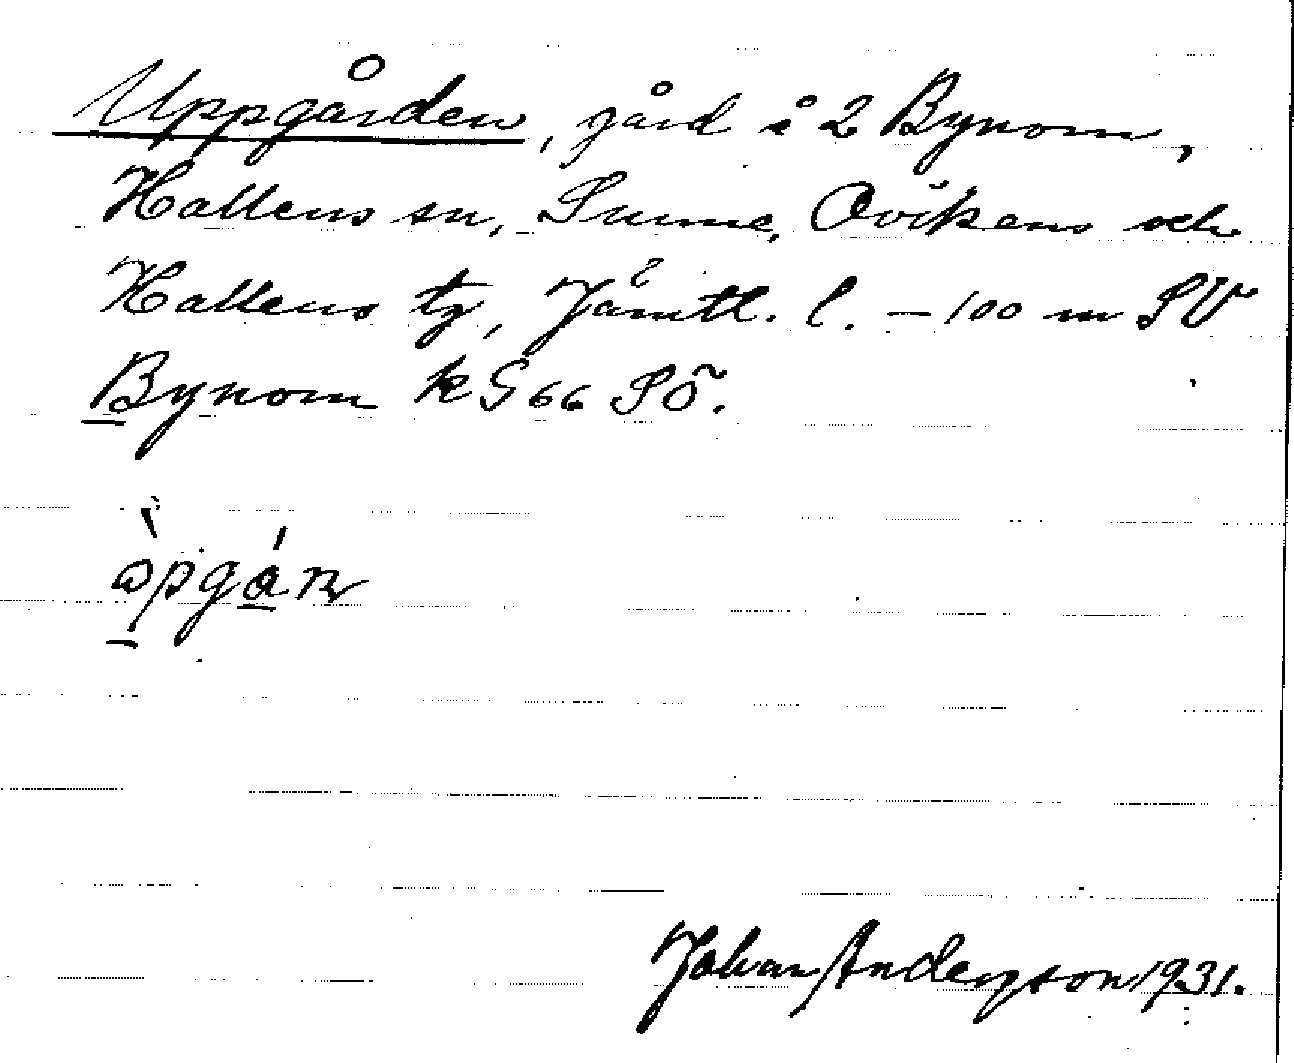 Uppgården, gård i 2 Bynom,
Hallens sn, Sunne, Ovikens och
Hallens tg, Jämtl. l. – 100 m SV
Bynom k G 66 SÖ.
òpgán
Johan Anderson 1931.